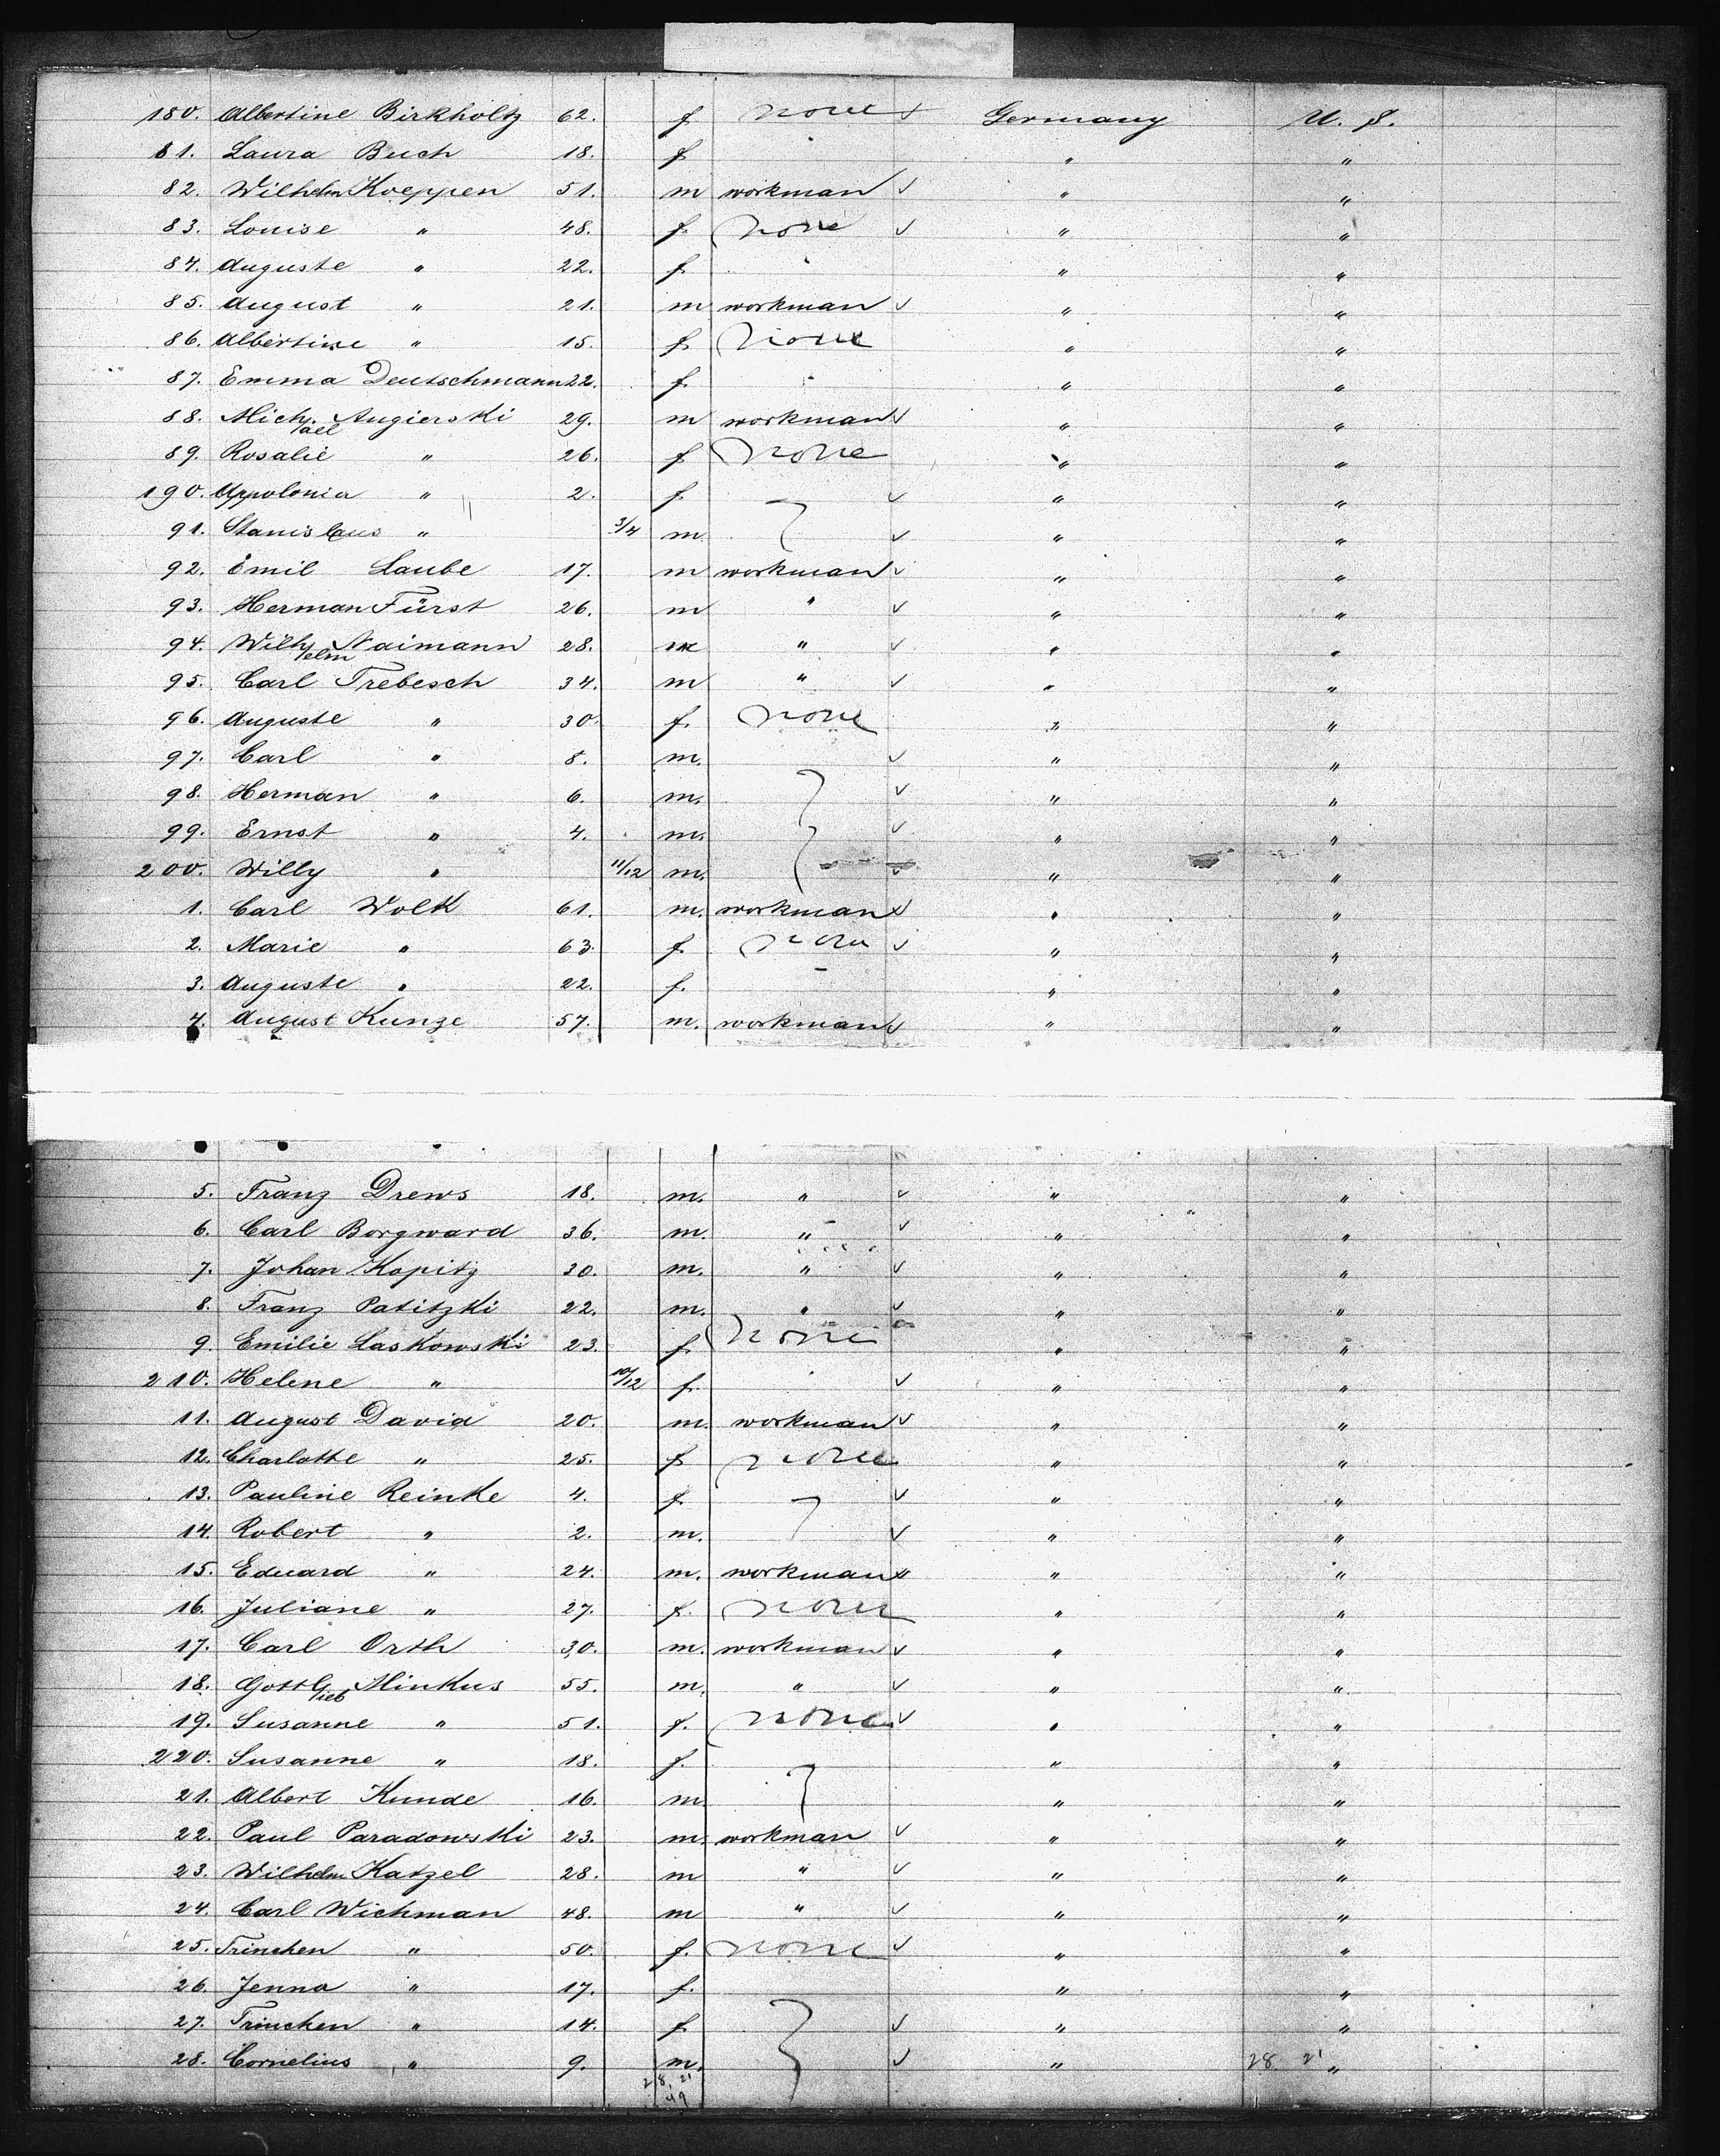 180. Albertine Birkholtz 62. f none Germany U. S.
81. Laura Buch 18. f " "
82. Wilhelm Koeppen 51. m workman " "
83. Louise " 48. f. none " "
84. Auguste " 22. f. " "
85. August " 21. m workman " "
86. Albertine " 15. f. none " "
87. Emma Deutschmann 22. f. " "
88. Michael Augierski 29. m workman " "
89. Rosalie " 26. f none " "
190. Appolonia " 2. f. " "
91. Stanislaus " 3/4 m. " "
92. Emil Laube 17. m workman " "
93. Herman Fürst 26. m " " "
94. Wilhelm Naimann 28. m " " "
95. Carl Trebesch 34. m " " "
96. Auguste " 30. f. none " "
97. Carl " 8. m. " "
98. Herman " 6. m. " "
99. Ernst " 4. m. " "
200. Willy " 11/12 m. " "
1. Carl Wolk 61. m. workman " "
2. Marie " 63. f. none " "
3. Auguste " 22. f. " "
4. August Kunze 57. m. workman " "
5. Franz Drews 18. m. " " "
6. Carl Borgward 36. m. " " "
7. Johan Kopitz 30. m. " " "
8. Franz Patitzki 22. m. " " "
9. Emilie Laskowski 23. f. none " "
210. Helene " 10/12 f. " "
11. August David 20. m. workman " "
12. Charlotte " 25. f none " "
13. Pauline Reinke 4. f. " "
14. Robert " 2. m. " "
15. Eduard " 24. m. workman " "
16. Juliane " 27. f. none " "
17. Carl Orth 30. m. workman " "
18. Gottlieb Minkus 55. m. " " "
19. Susanne " 51. f. none " "
220. Susanne " 18. f. " "
21. Albert Kunde 16. m " "
22. Paul Paradowski 23. m. workman " "
23. Wilhelm Katzel 28. m " " "
24. Carl Wichman 48. m " " "
25. Trinchen " 50. f. none " "
26. Jenna " 17. f. " "
27. Trinchen " 14. f. " "
28. Cornelius " 9. m. " 28. 21 "
28. 21
49